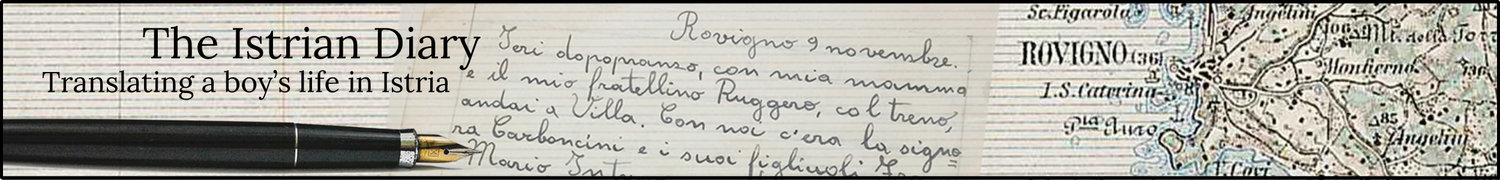 The Istrian Diary
Translating a boy's life in Istria
Rovigno 9 novembre.
Ieri dopopranzo, con mia mamma
e il mio fratellino Ruggero, col treno,
andai a Villa. Con noi c'era la signo=
ra Carboncini e i suoi figliuoli
Mario
Sc. Figarola
Angelini
ROVIGNO (36)
I. S. Caterina
Pta Auro
Monfierno
85
Angelini